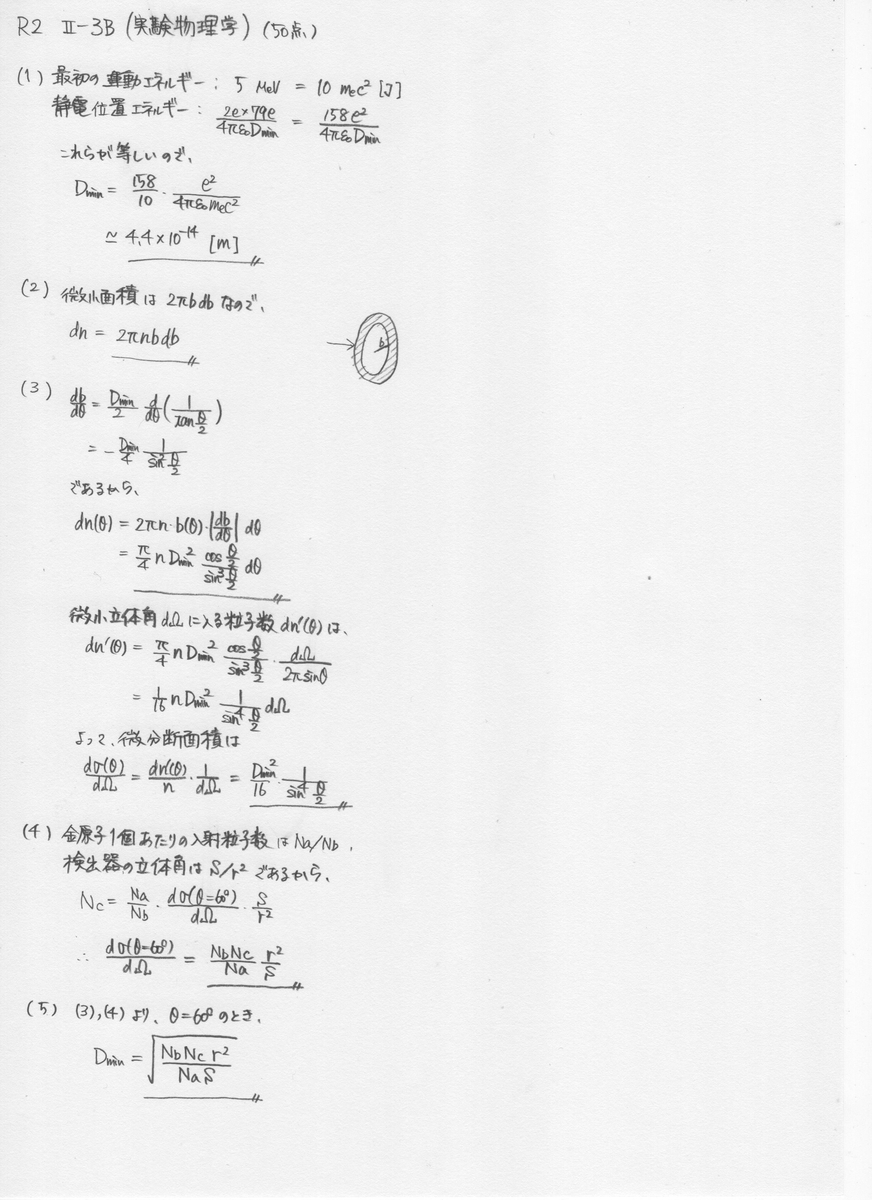 R2 Ⅱ-3B (実験物理学) (50点)
(1) 最初の運動エネルギー: 5 MeV = 10 mec² [J]
静電位置エネルギー: 2e×79e/4πε₀Dmin = 158e²/4πε₀Dmin
これらが等しいので、
Dmin = 158/10 · e²/4πε₀mec²
≃ 4.4×10⁻¹⁴ [m]
(2) 微小面積は 2πbdb なので、
dn = 2πnbdb
b
(3) db/dθ = Dmin/2 d/dθ(1/tan θ/2)
= -Dmin/4 1/sin² θ/2
であるから、
dn(θ) = 2πn·b(θ)·|db/dθ| dθ
= π/4 n Dmin² cos θ/2 / sin³ θ/2 dθ
微小立体角dΩに入る粒子数dn'(θ)は、
dn'(θ) = π/4 n Dmin² cos θ/2 / sin³ θ/2 · dΩ/2π sinθ
= 1/16 n Dmin² 1/sin⁴ θ/2 dΩ
よって、微分断面積は
dσ(θ)/dΩ = dn'(θ)/n · 1/dΩ = Dmin²/16 · 1/sin⁴ θ/2
(4) 金原子1個あたりの入射粒子数はNa/Nb、
検出器の立体角はS/r²であるから、
Nc = Na/Nb · dσ(θ=60°)/dΩ · S/r²
∴ dσ(θ=60°)/dΩ = NbNc/Na r²/S
(5) (3),(4)より、θ=60°のとき、
Dmin = √(NbNc r²/NaS)